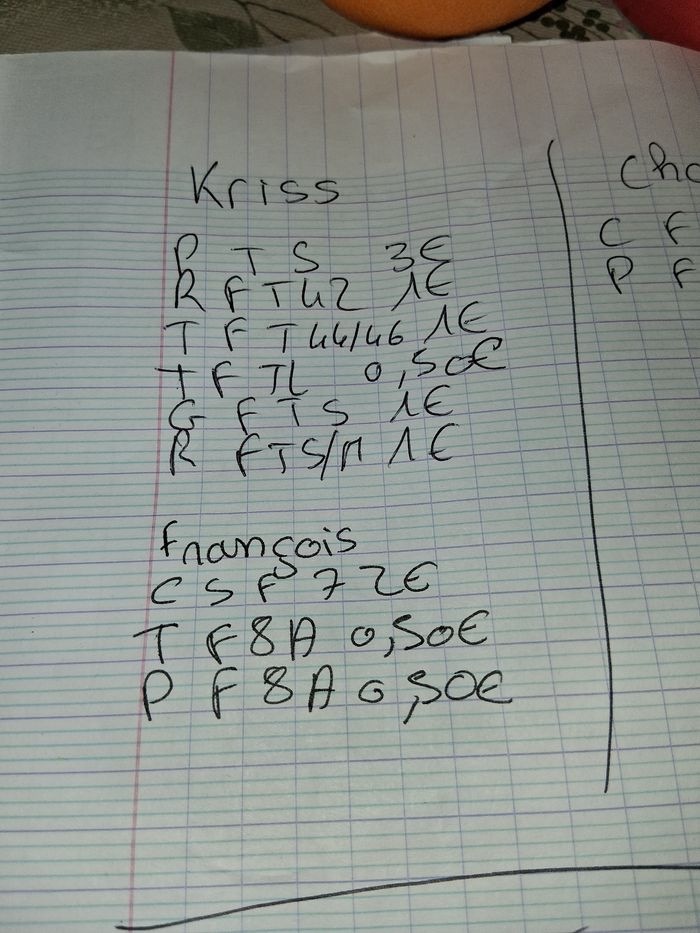 Kriss
P T S 3€
R F T42 1€
T F T44/46 1€
T F TL 0,50€
G F T S 1€
R F T S/M 1€
François
C S F 7 2€
T F 8A 0,50€
P F 8A 0,50€
C F
P F